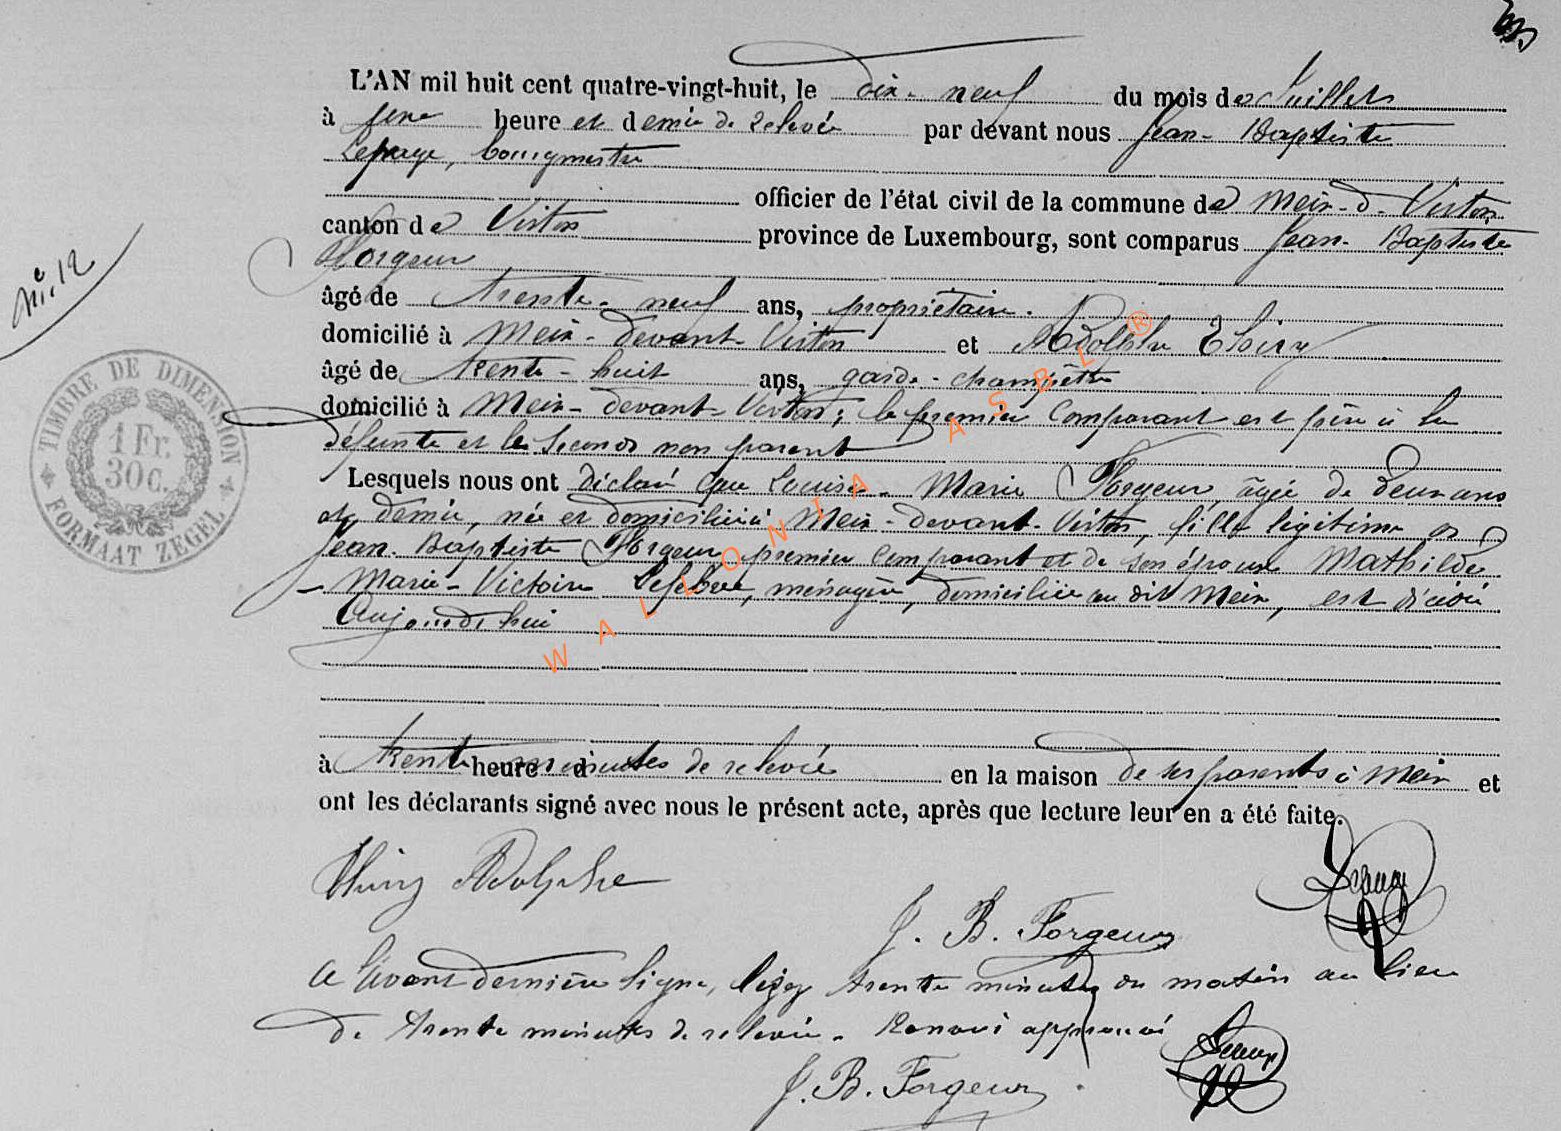 L'AN mil huit cent quatre-vingt-huit, le dix-neuf du mois de Juillet
à une heure et demie de relevée par devant nous Jean-Baptiste
Lepage, bourgmestre
officier de l'état civil de la commune de Meix-d-Virton
canton de Virton province de Luxembourg, sont comparus Jean-Baptiste
Forgeur
âgé de trente-neuf ans, propriétaire.
domicilié à Meix-devant-Virton et Adolphe Thiry
âgé de trente-huit ans, garde-champêtre
domicilié à Meix-devant-Virton; le premier comparant est père à la
défunte et le second non parent
N° 12
TIMBRE DE DIMENSION
1 Fr.
30 c.
FORMAAT ZEGEL
Lesquels nous ont déclaré que Louise-Marie Forgeur, âgée de deux ans
et demie, née et domiciliée à Meix-devant-Virton, fille légitime de
Jean-Baptiste Forgeur premier comparant et de son épouse Mathilde
-Marie-Victoire Lefebvre, ménagère, domiciliée au dit Meix, est décédée
Aujourd'hui
à trente heure minutes de relevée en la maison de ses parents à Meix et
ont les déclarants signé avec nous le présent acte, après que lecture leur en a été faite.
Thiry Adolphe
Lepage
J. B. Forgeur
A l'avant dernière ligne, lisez trente minutes du matin au lieu
de trente minutes de relevée. Renvoi approuvé
Lepage
J. B. Forgeur
WALLONIA ASBL ®